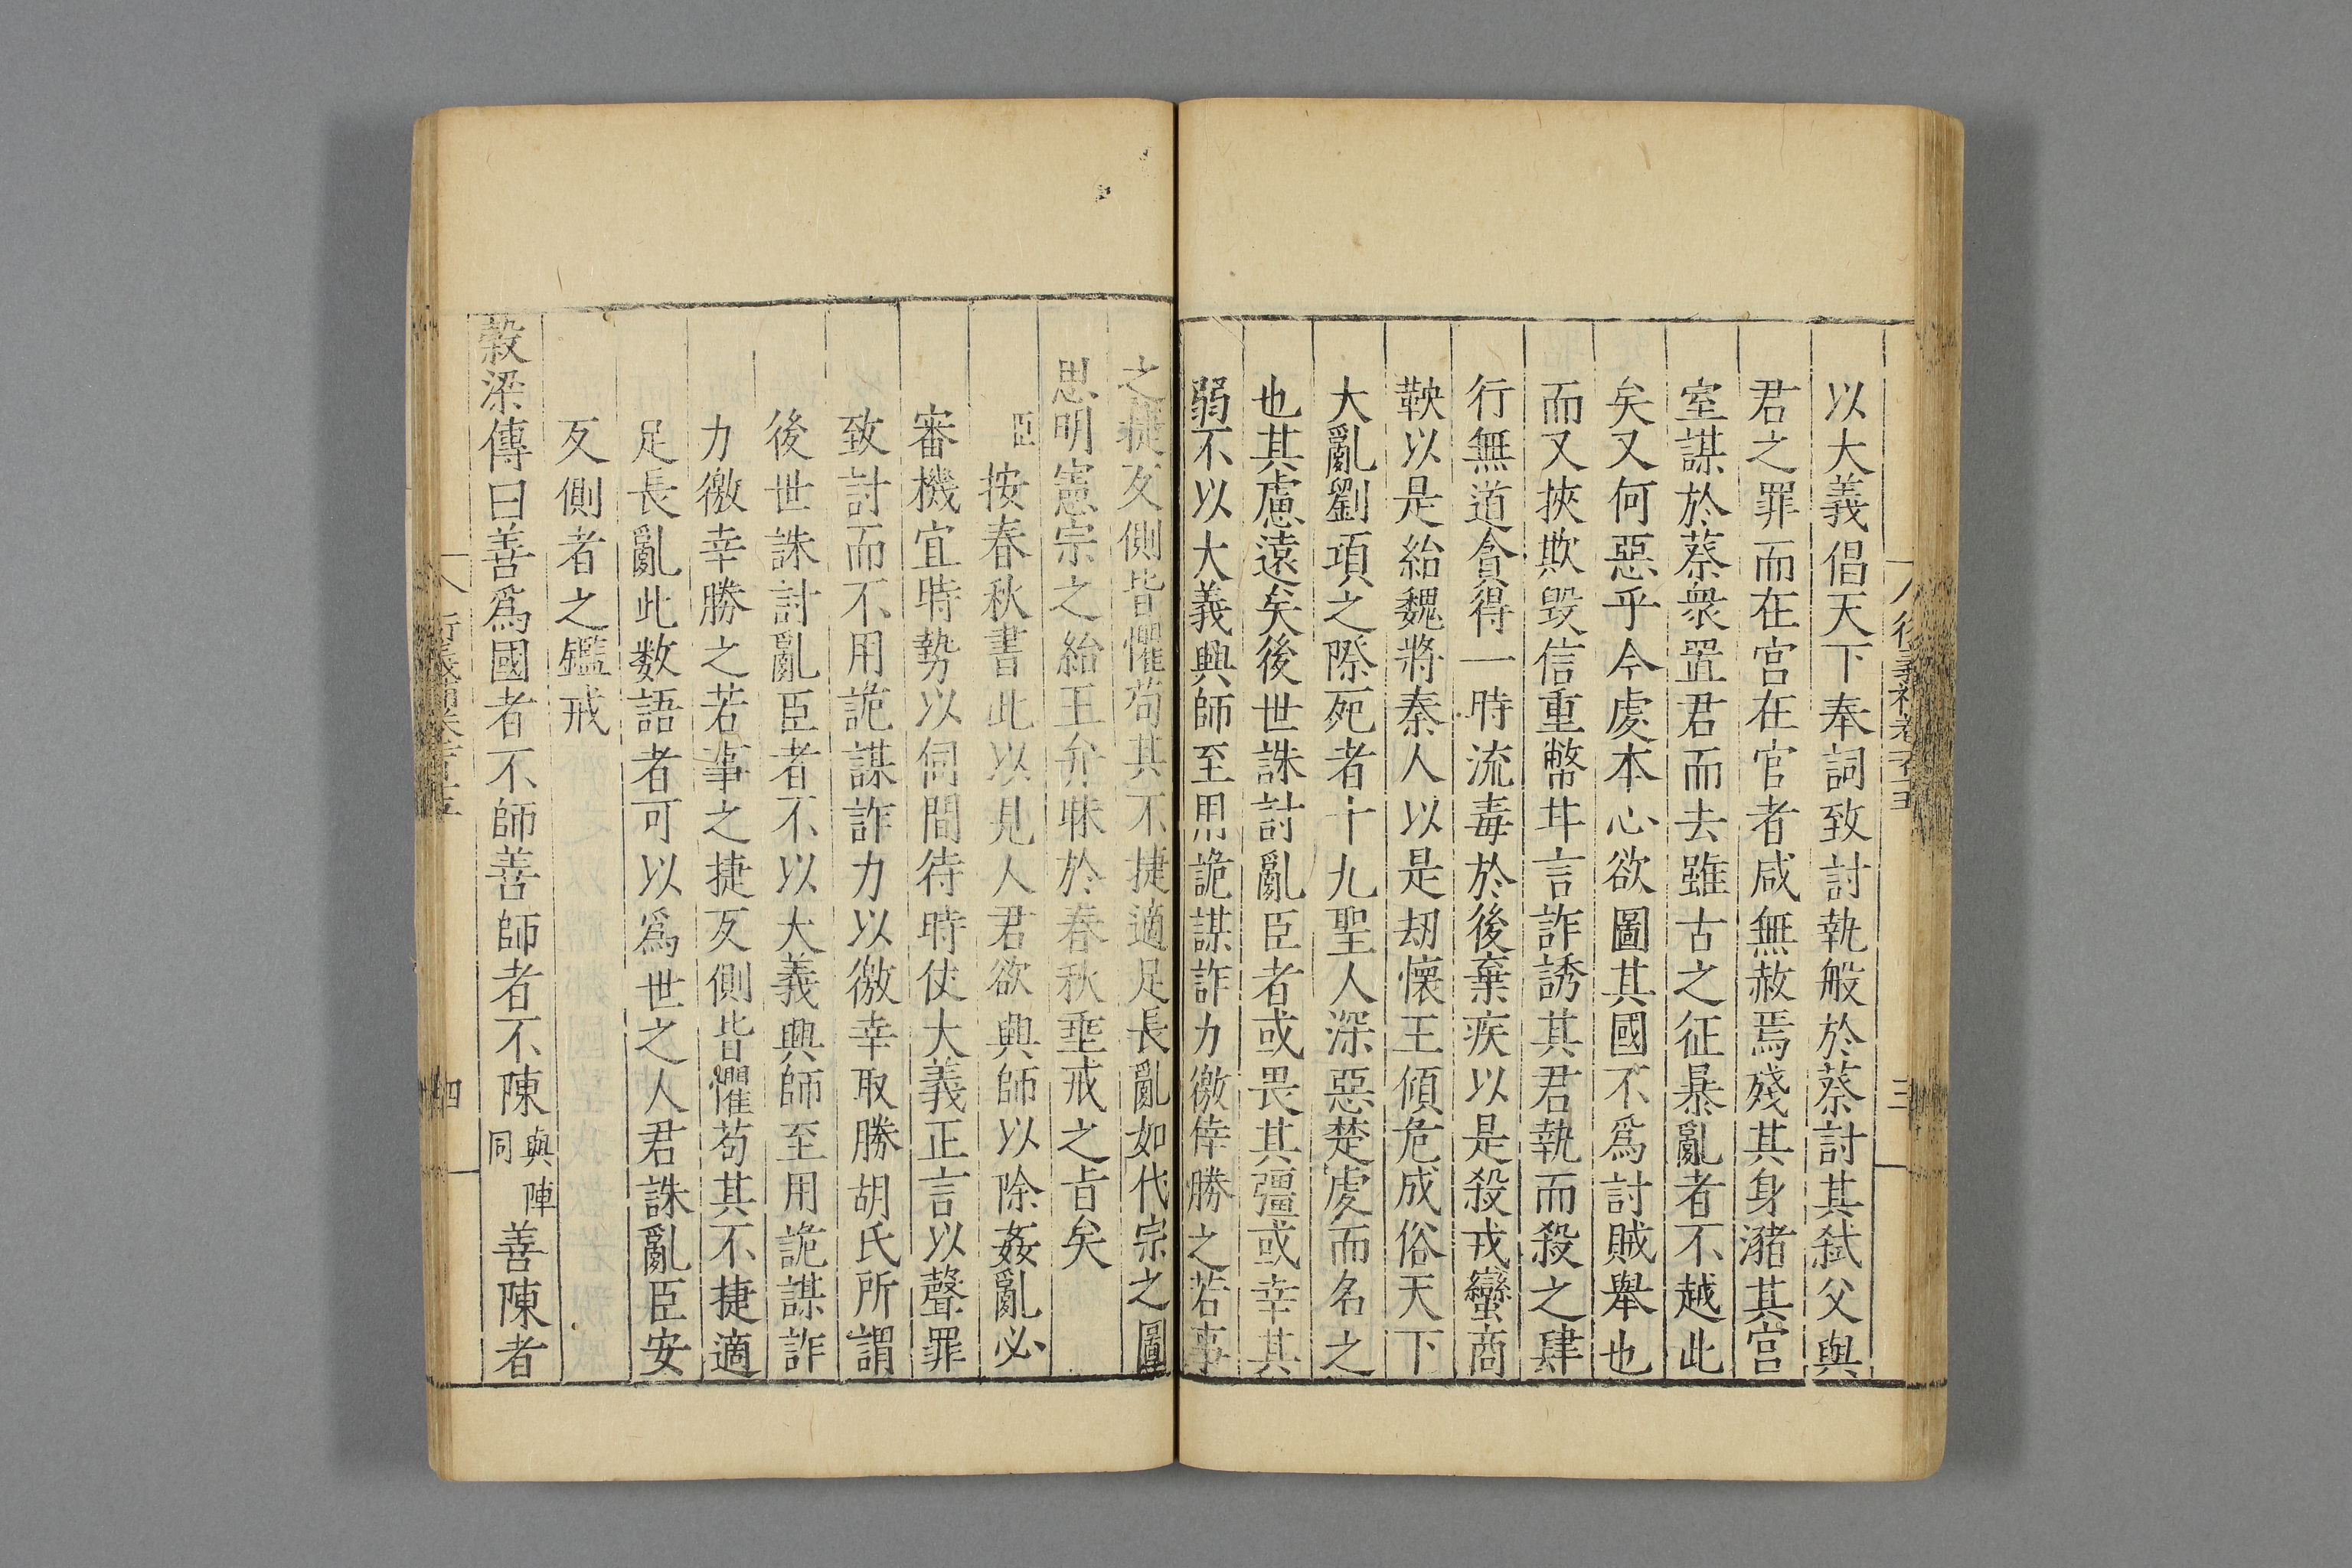 以大義倡天下奉詞致討執般於蔡討其弑父與
君之罪而在宫在官者咸無赦焉殘其身瀦其宫
室謀於蔡衆置君而去雖古之征暴亂者不越此
矣又何惡乎今虔本心欲圖其國不爲討賊舉也
而又挾欺毀信重幣甘言詐誘其君執而殺之肆
行無道貪得一時流毒於後棄疾以是殺戎蠻商
鞅以是紿魏將秦人以是刼懷王傾危成俗天下
大亂劉項之際死者十九聖人深惡楚虔而名之
也其慮遠矣後世誅討亂臣者或畏其彊或幸其
弱不以大義興師至用詭謀詐力徼倖勝之若事
之捷反側皆懼苟其不捷適足長亂如代宗之圖
思明憲宗之紿王弁昧於春秋垂戒之㫖矣
臣按春秋書此以見人君欲興師以除姦亂必
審機宜時勢以伺間待時仗大義正言以聲罪
致討而不用詭謀詐力以徼幸取勝胡氏所謂
後世誅討亂臣者不以大義興師至用詭謀詐
力徼幸勝之若事之捷反側皆懼苟其不捷適
足長亂此数語者可以爲世之人君誅亂臣安
反側者之鑑戒
穀梁傳曰善爲國者不師善師者不陳與陣同善陳者
四
三